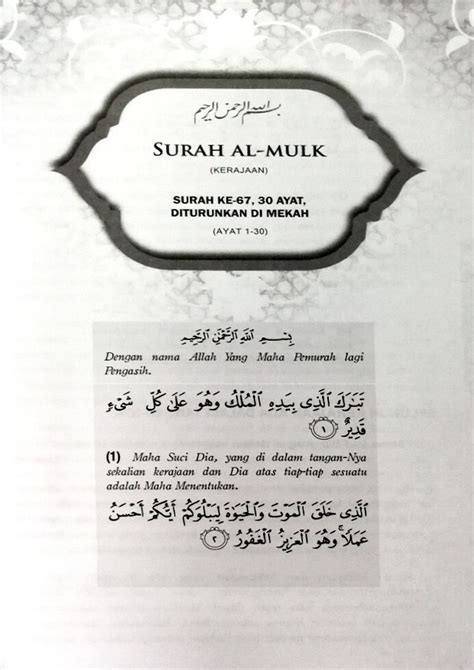 بسم الله الرحمن الرحيم
SURAH AL-MULK
(KERAJAAN)
SURAH KE-67, 30 AYAT,
DITURUNKAN DI MEKAH
(AYAT 1-30)
بِسْمِ ٱللَّهِ ٱلرَّحْمَٰنِ ٱلرَّحِيمِ
Dengan nama Allah Yang Maha Pemurah lagi
Pengasih.
تَبَٰرَكَ ٱلَّذِى بِيَدِهِ ٱلْمُلْكُ وَهُوَ عَلَىٰ كُلِّ شَىْءٍ
قَدِيرٌ ١
(1) Maha Suci Dia, yang di dalam tangan-Nya
sekalian kerajaan dan Dia atas tiap-tiap sesuatu
adalah Maha Menentukan.
ٱلَّذِى خَلَقَ ٱلْمَوْتَ وَٱلْحَيَوٰةَ لِيَبْلُوَكُمْ أَيُّكُمْ أَحْسَنُ
عَمَلًا ۚ وَهُوَ ٱلْعَزِيزُ ٱلْغَفُورُ ٢